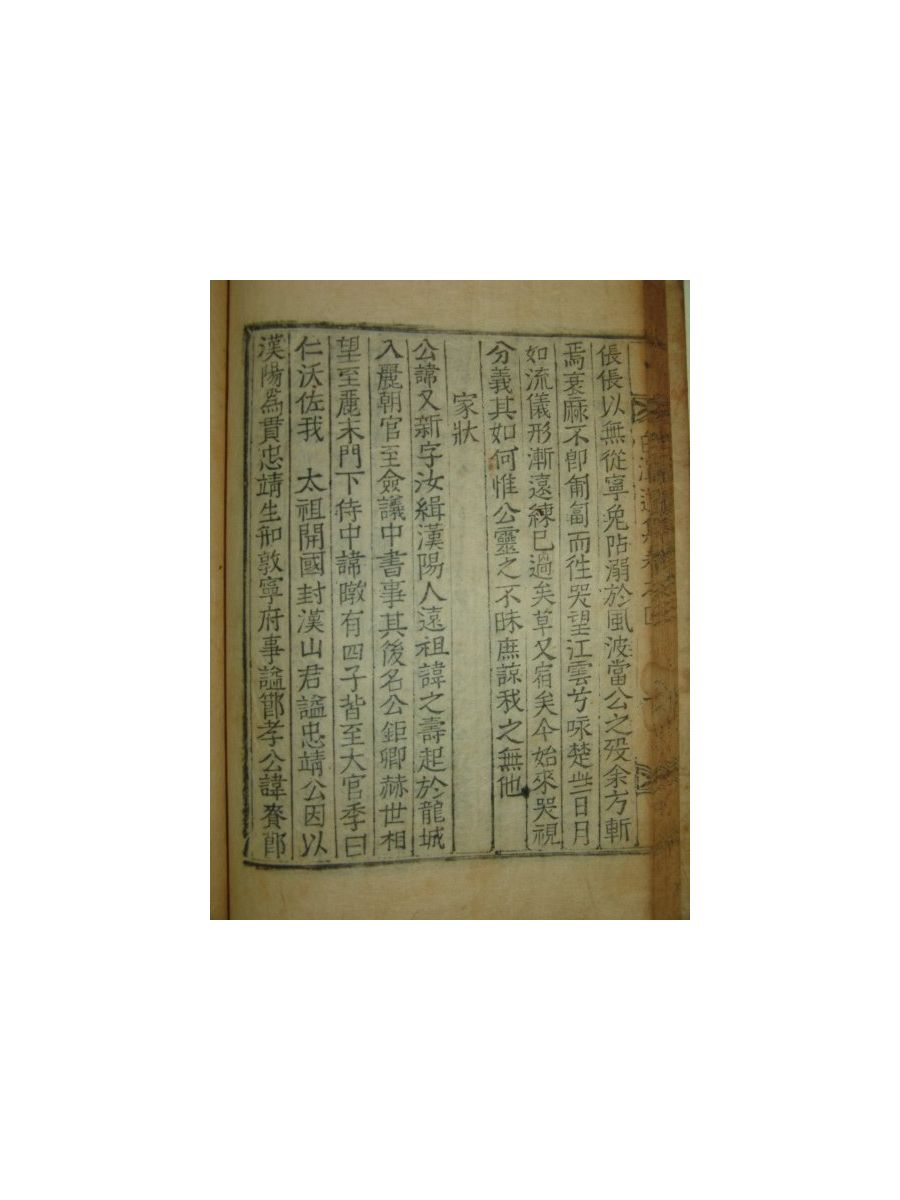 倀倀以無從寧免阽溺於風波當公之歿余方斬
焉衰麻不卽匍匐而徃哭望江雲兮咏楚些日月
如流儀形漸遠練已過矣草又宿矣今始來哭視
分義其如何惟公靈之不昧庶諒我之無他
家狀
公諱又新字汝緝漢陽人遠祖諱之壽起於龍城
入麗朝官至僉議中書事其後名公鉅卿赫世相
望至麗末門下侍中諱暾有四子皆至大官季曰
仁沃佐我 太祖開國封漢山君謚忠靖公因以
漢陽爲貫忠靖生知敦寧府事謚節孝公諱賚節